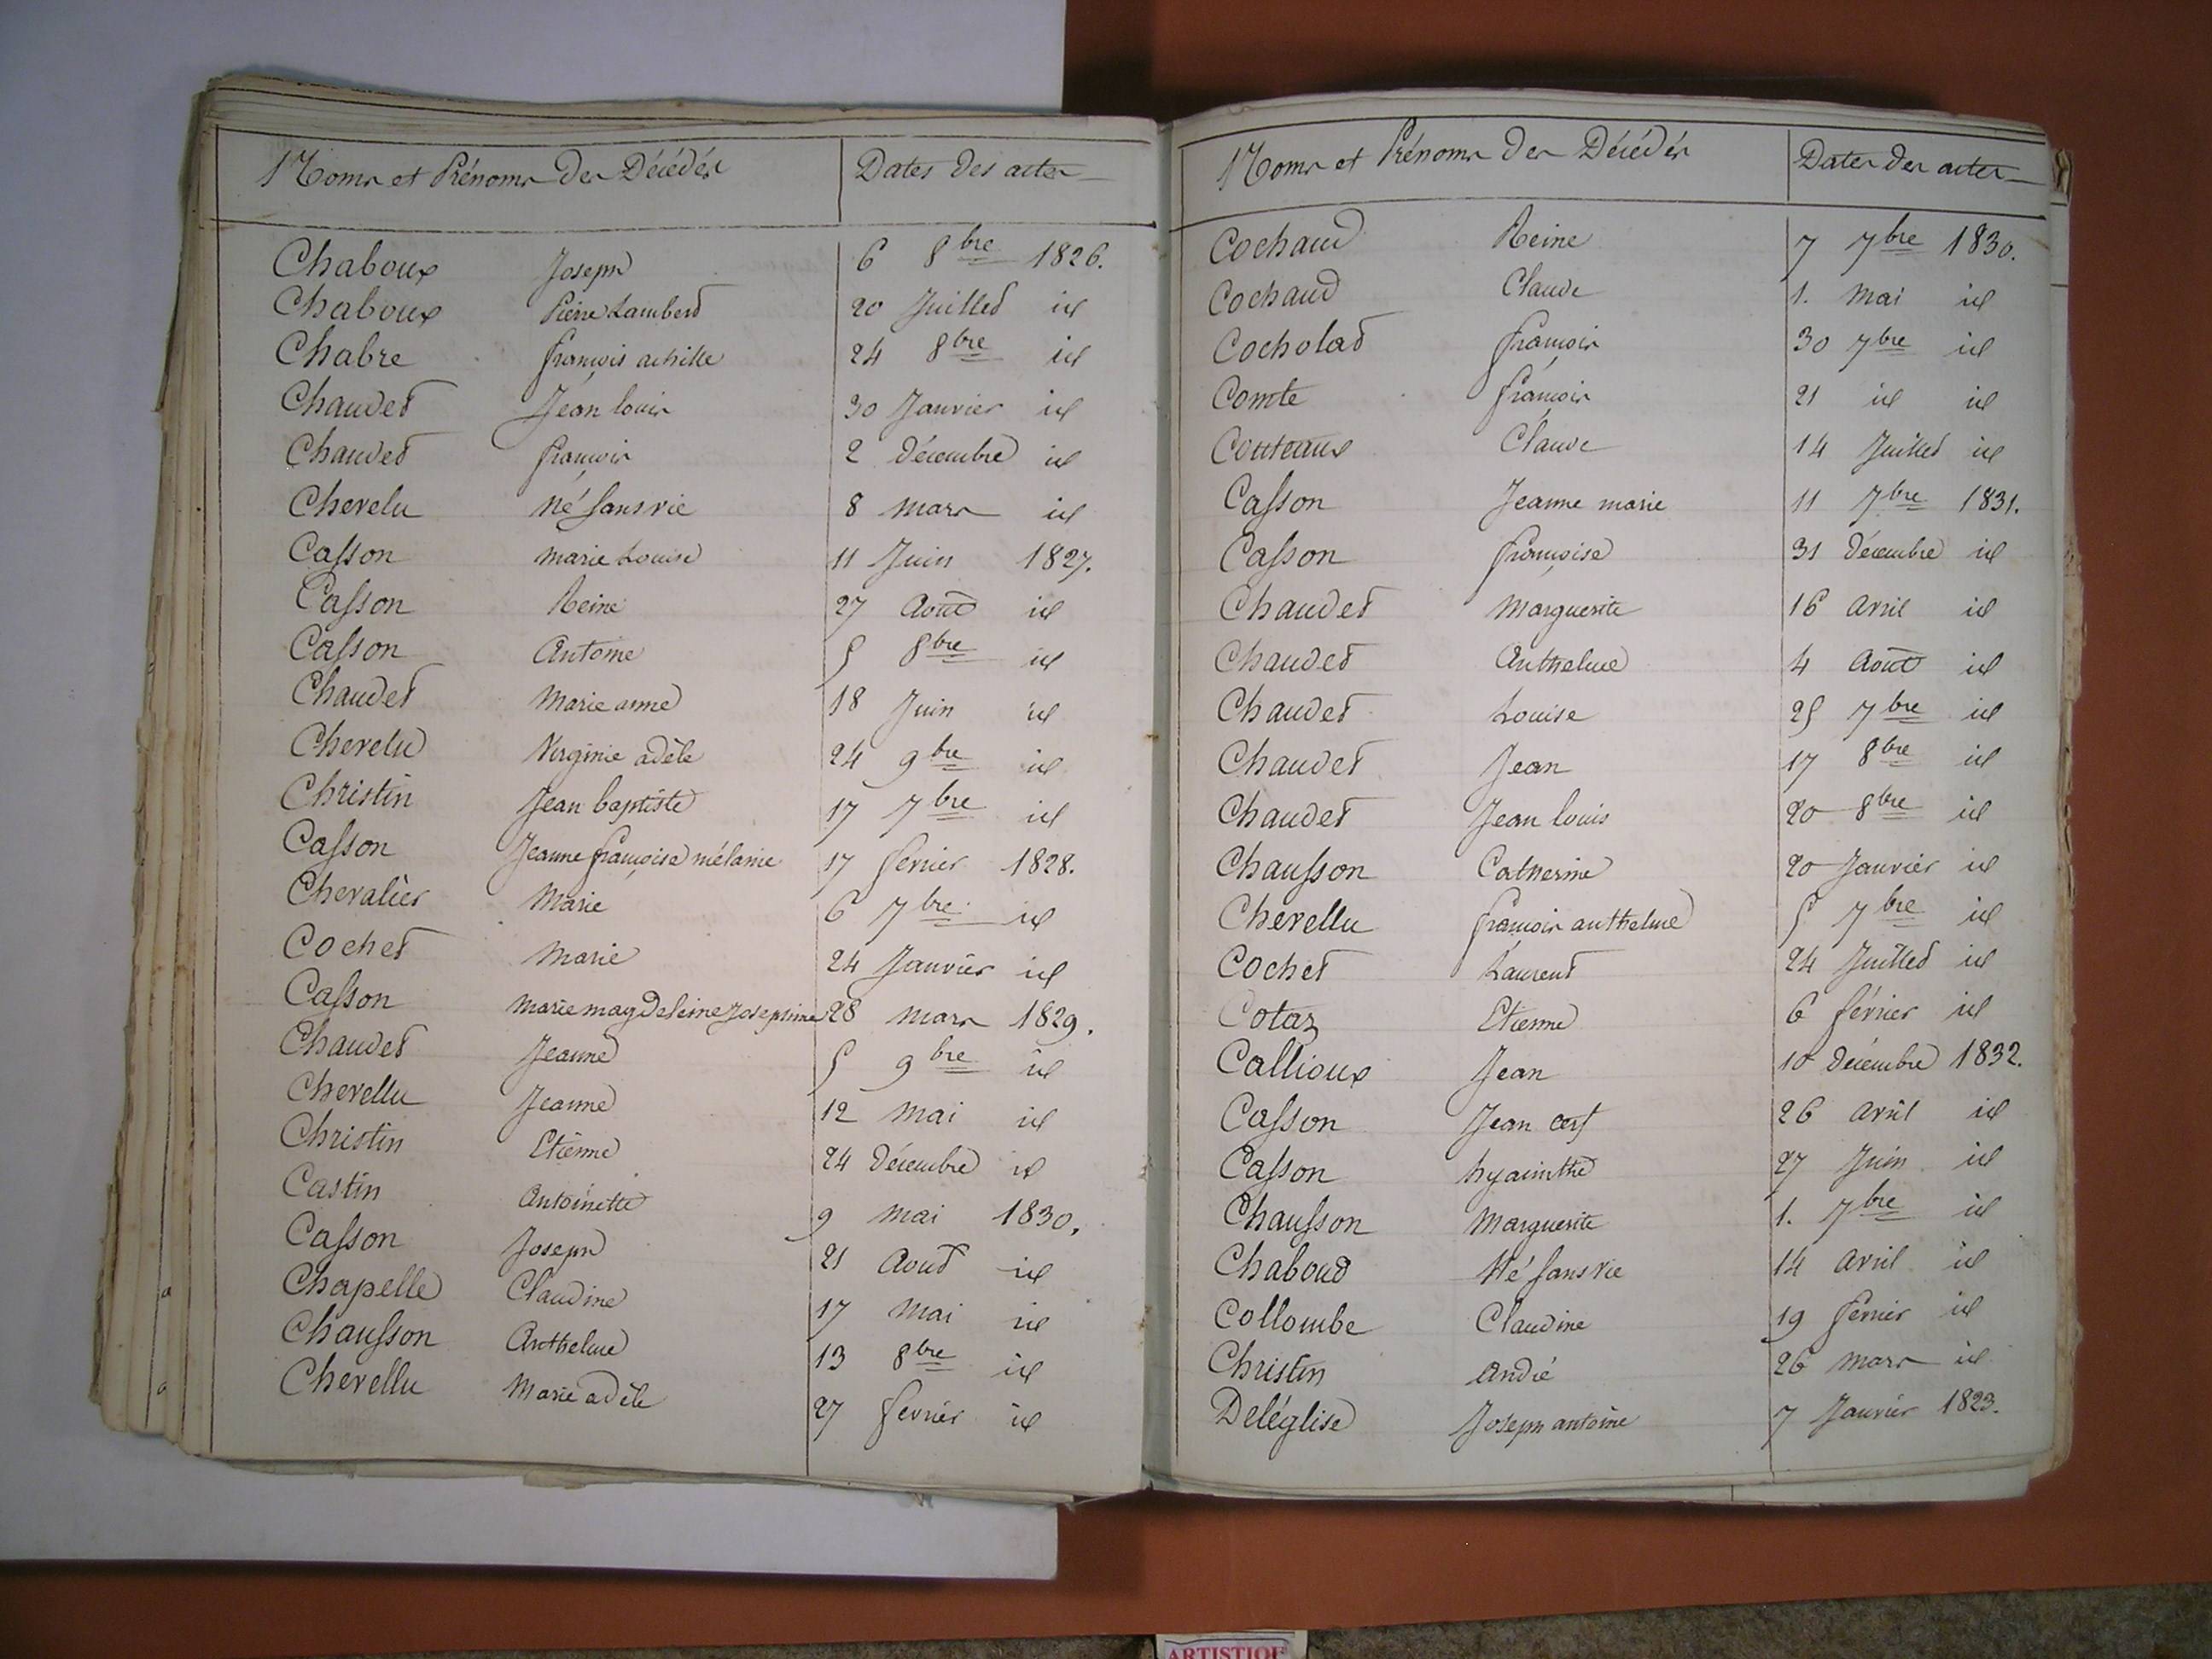 Noms et Prénoms des Décédés Dates des actes
Chaboux Joseph 6 8bre 1826.
Chaboux Pierre Lambert 20 Juillet id
Chabre françois achille 24 8bre id
Chaudet Jean louis 30 Janvier id
Chaudet françois 2 décembre id
Chevelu né sans vie 8 mars id
Casson marie Louise 11 Juin 1827.
Casson Reine 27 Août id
Casson Antoine 5 8bre id
Chaudet Marie anne 18 Juin id
Chevelu Virginie adèle 24 9bre id
Christin Jean baptiste 17 7bre id
Casson Jeanne françoise mélanie 17 fevrier 1828.
Chevalier Marie 6 7bre id
Cochet Marie 24 Janvier id
Casson marie magdeleine Josephine 28 mars 1829.
Chaudet Jeanne 5 9bre id
Chevellu Jeanne 12 mai id
Christin Etienne 24 décembre id
Castin Antoinette 9 mai 1830.
Casson Joseph 21 Aout id
Chapelle Claudine 17 mai id
Chausson Anthelme 13 8bre id
Chevellu Marie adèle 27 fevrier id
Noms et Prénoms des Décédés Dates des actes
Cochaud Reine 7 7bre 1830.
Cochaud Claude 1. mai id
Cocholat françois 30 7bre id
Comte françois 21 id id
Couteaux Claude 14 Juillet id
Casson Jeanne marie 11 7bre 1831.
Casson françoise 31 décembre id
Chaudet Marguerite 16 avril id
Chaudet Anthelme 4 Août id
Chaudet Louise 25 7bre id
Chaudet Jean 17 8bre id
Chaudet Jean louis 20 8bre id
Chausson Catherine 20 Janvier id
Chevellu françois anthelme 5 7bre id
Cochet Laurent 24 Juillet id
Cotaz Etienne 6 février id
Callioux Jean 10 décembre 1832.
Casson Jean cerf 26 avril id
Casson hyacinthe 27 Juin id
Chausson Marguerite 1. 7bre id
Chaboud Né sans vie 14 avril id
Collombe Claudine 19 fevrier id
Christin André 26 mars id
Deléglise Joseph antoine 7 Janvier 1823.
ARTISTIQUE